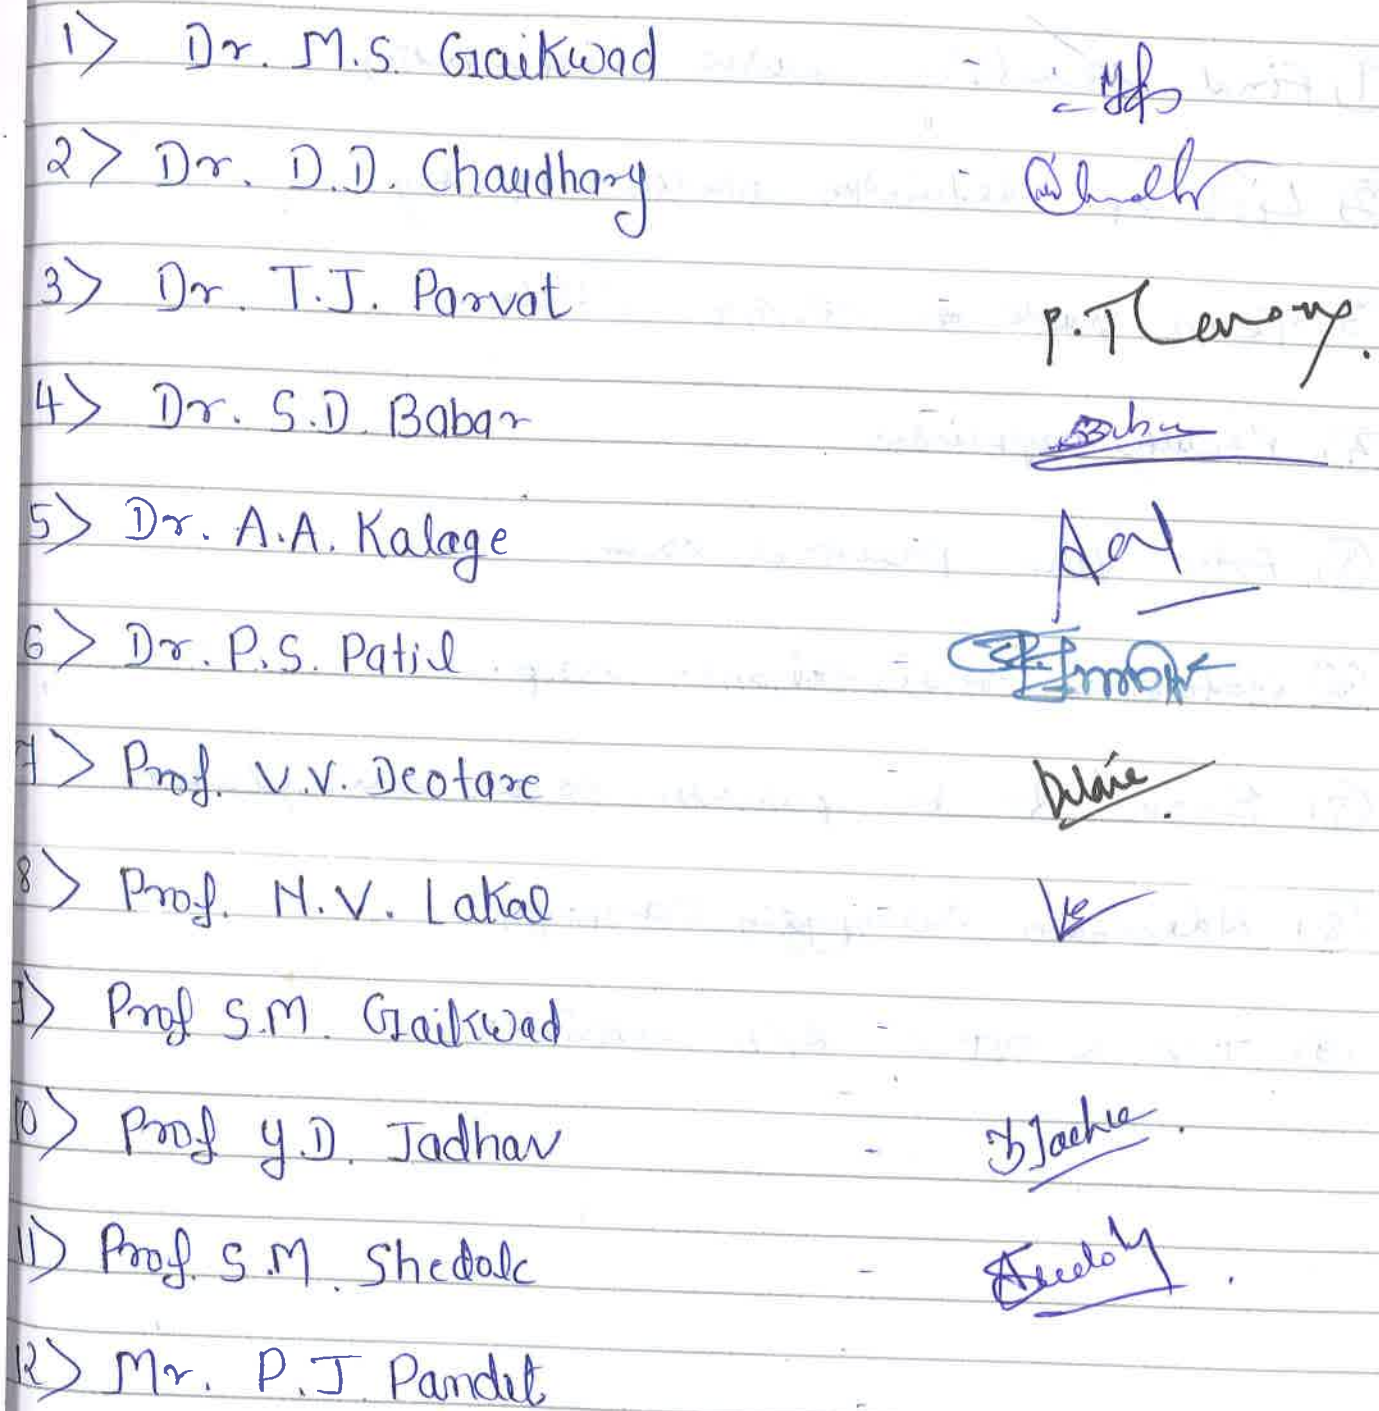 1> Dr. M.S. Gaikwad
2> Dr. D.D. Chaudhary
3> Dr. T.J. Parvat
4> Dr. S.D. Babar
5> Dr. A.A. Kalage
6> Dr. P.S. Patil
7> Prof. V.V. Deotare -
8> Prof. N.V. Lakal -
9> Prof S.M. Gaikwad -
10> Prof Y.D. Jadhav -
11> Prof. S.M. Shedole -
12> Mr. P.J. Pandit -